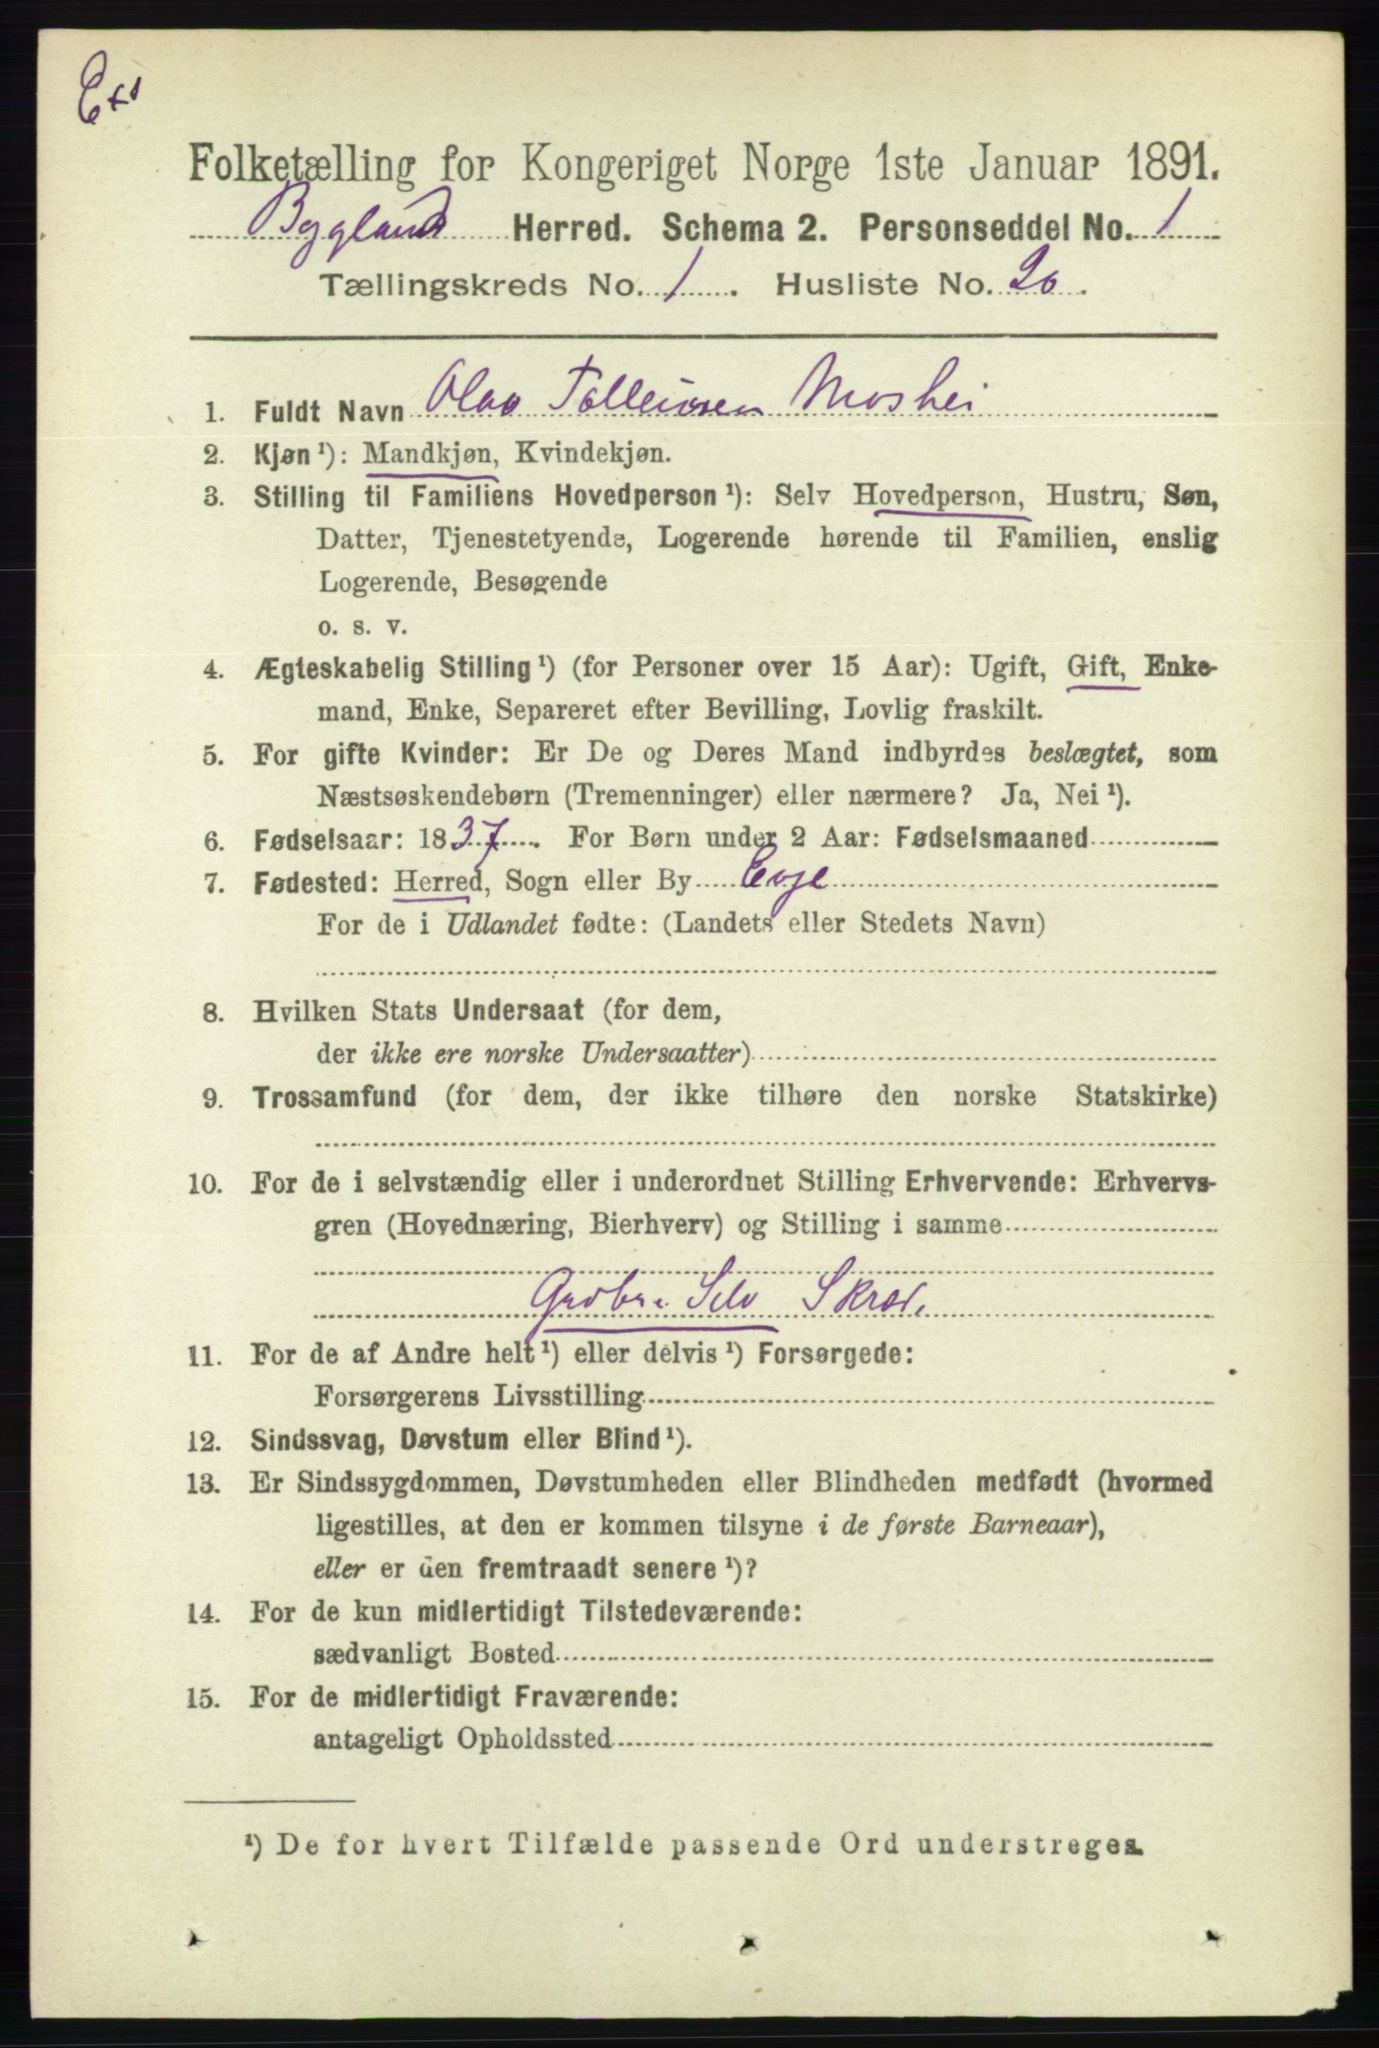 Folketælling for Kongeriget Norge 1ste Januar 1891.
Bygland Herred. Schema 2. Personseddel No. 1
Tællingskreds No. 1. Husliste No. 20.
1. Fuldt Navn Olav Talleivsen Moshei
2. Kjøn ¹): Mandkjøn, Kvindekjøn.
3. Stilling til Familiens Hovedperson ¹): Selv Hovedperson, Hustru, Søn,
Datter, Tjenestetyende, Logerende hørende til Familien, enslig
Logerende, Besøgende
o. s. v.
4. Ægteskabelig Stilling ¹) (for Personer over 15 Aar): Ugift, Gift, Enke-
mand, Enke, Separeret efter Bevilling, Lovlig fraskilt.
5. For gifte Kvinder: Er De og Deres Mand indbyrdes beslægtet, som
Næstsøskendebørn (Tremenninger) eller nærmere? Ja, Nei ¹).
6. Fødselsaar: 1837. For Børn under 2 Aar: Fødselsmaaned
7. Fødested: Herred, Sogn eller By Evje
For de i Udlandet fødte: (Landets eller Stedets Navn)
8. Hvilken Stats Undersaat (for dem,
der ikke ere norske Undersaatter)
9. Trossamfund (for dem, der ikke tilhøre den norske Statskirke)
10. For de i selvstændig eller i underordnet Stilling Erhvervende: Erhvervs-
gren (Hovednæring, Bierhverv) og Stilling i samme
Grdbr. Selv Skræd.
11. For de af Andre helt ¹) eller delvis ¹) Forsørgede:
Forsørgerens Livsstilling
12. Sindssvag, Døvstum eller Blind ¹).
13. Er Sindssygdommen, Døvstumheden eller Blindheden medfødt (hvormed
ligestilles, at den er kommen tilsyne i de første Barneaar),
eller er den fremtraadt senere ¹)?
14. For de kun midlertidigt Tilstedeværende:
sædvanligt Bosted
15. For de midlertidigt Fraværende:
antageligt Opholdssted
¹) De for hvert Tilfælde passende Ord understreges.